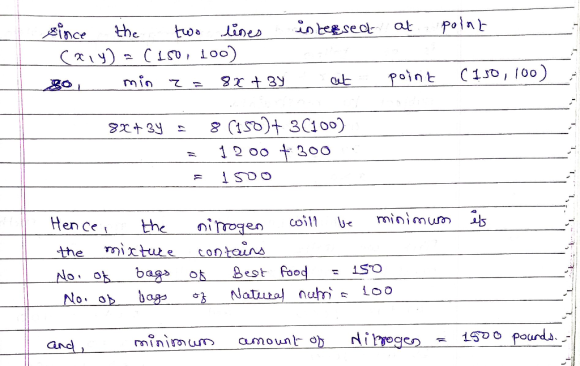 Since the two lines intersect at point
(x,y) = (150, 100)
So, min z = 8x + 3y at point (150, 100)
8x+3y = 8(150)+ 3(100)
= 1200 + 300
= 1500
Hence, the nitrogen will be minimum if
the mixture contains
No. of bags of Best Food = 150
No. of bags of Natural nutri = 100
and, minimum amount of Nitrogen = 1500 pounds.